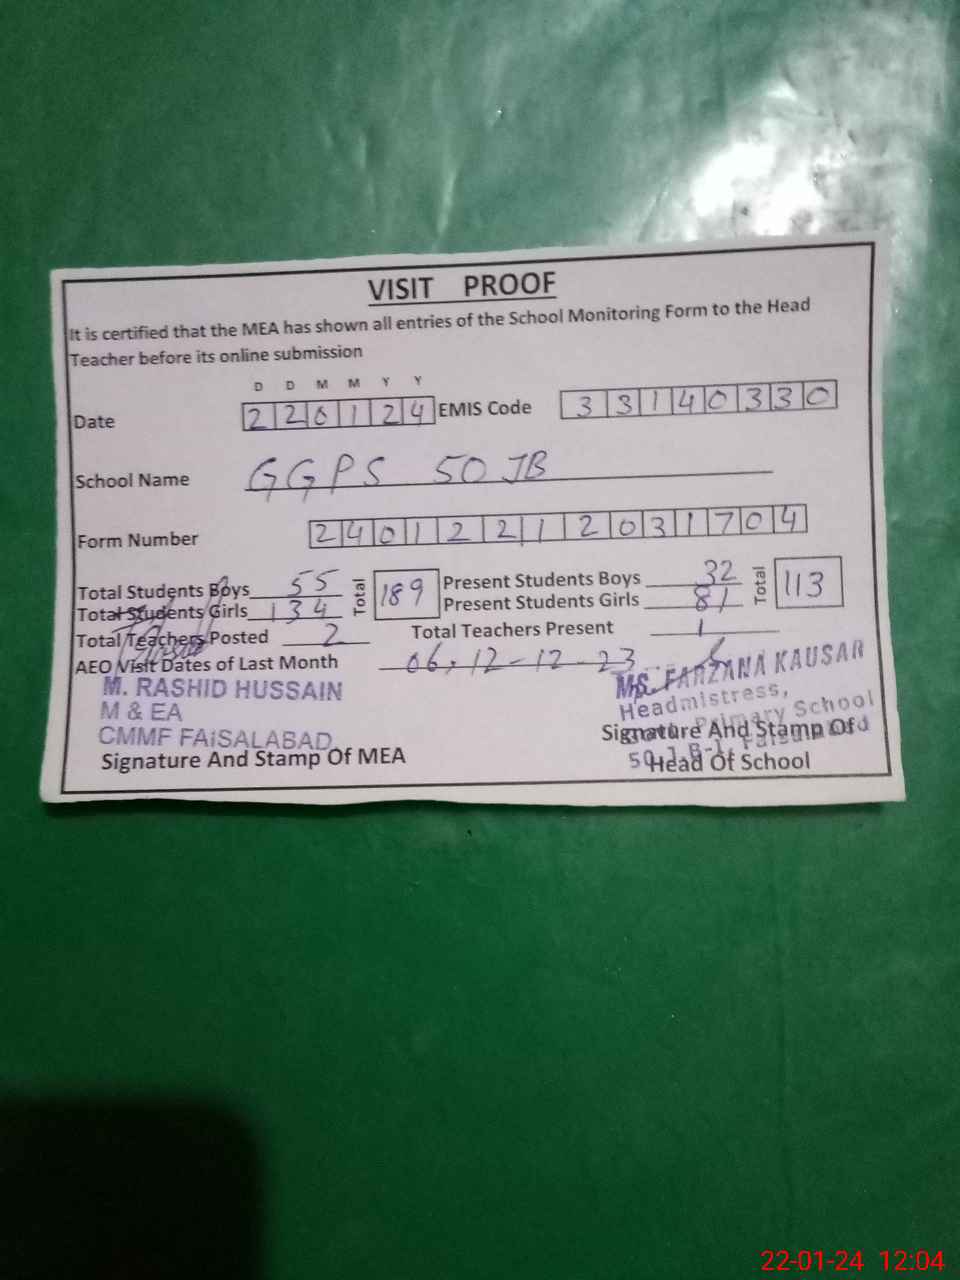 VISIT PROOF
It is certified that the MEA has shown all entries of the School Monitoring Form to the Head
Teacher before its online submission
D D M M Y Y
Date 220124 EMIS Code 33140330
School Name GGPS 50 JB
Form Number 24012212031704
Total Students Boys 55 Total 189 Present Students Boys 32 Total 113
Total Students Girls 134 Present Students Girls 81
Total Teachers Posted 2 Total Teachers Present 1
AEO Visit Dates of Last Month 06, 12-12-23
M. RASHID HUSSAIN
M & EA
CMMF FAISALABAD
Signature And Stamp Of MEA
MS. FARZANA KAUSAR
Headmistress,
Primary School
Signature And Stamp Of
50 J.B-1, Faisalabad
Head Of School
22-01-24 12:04